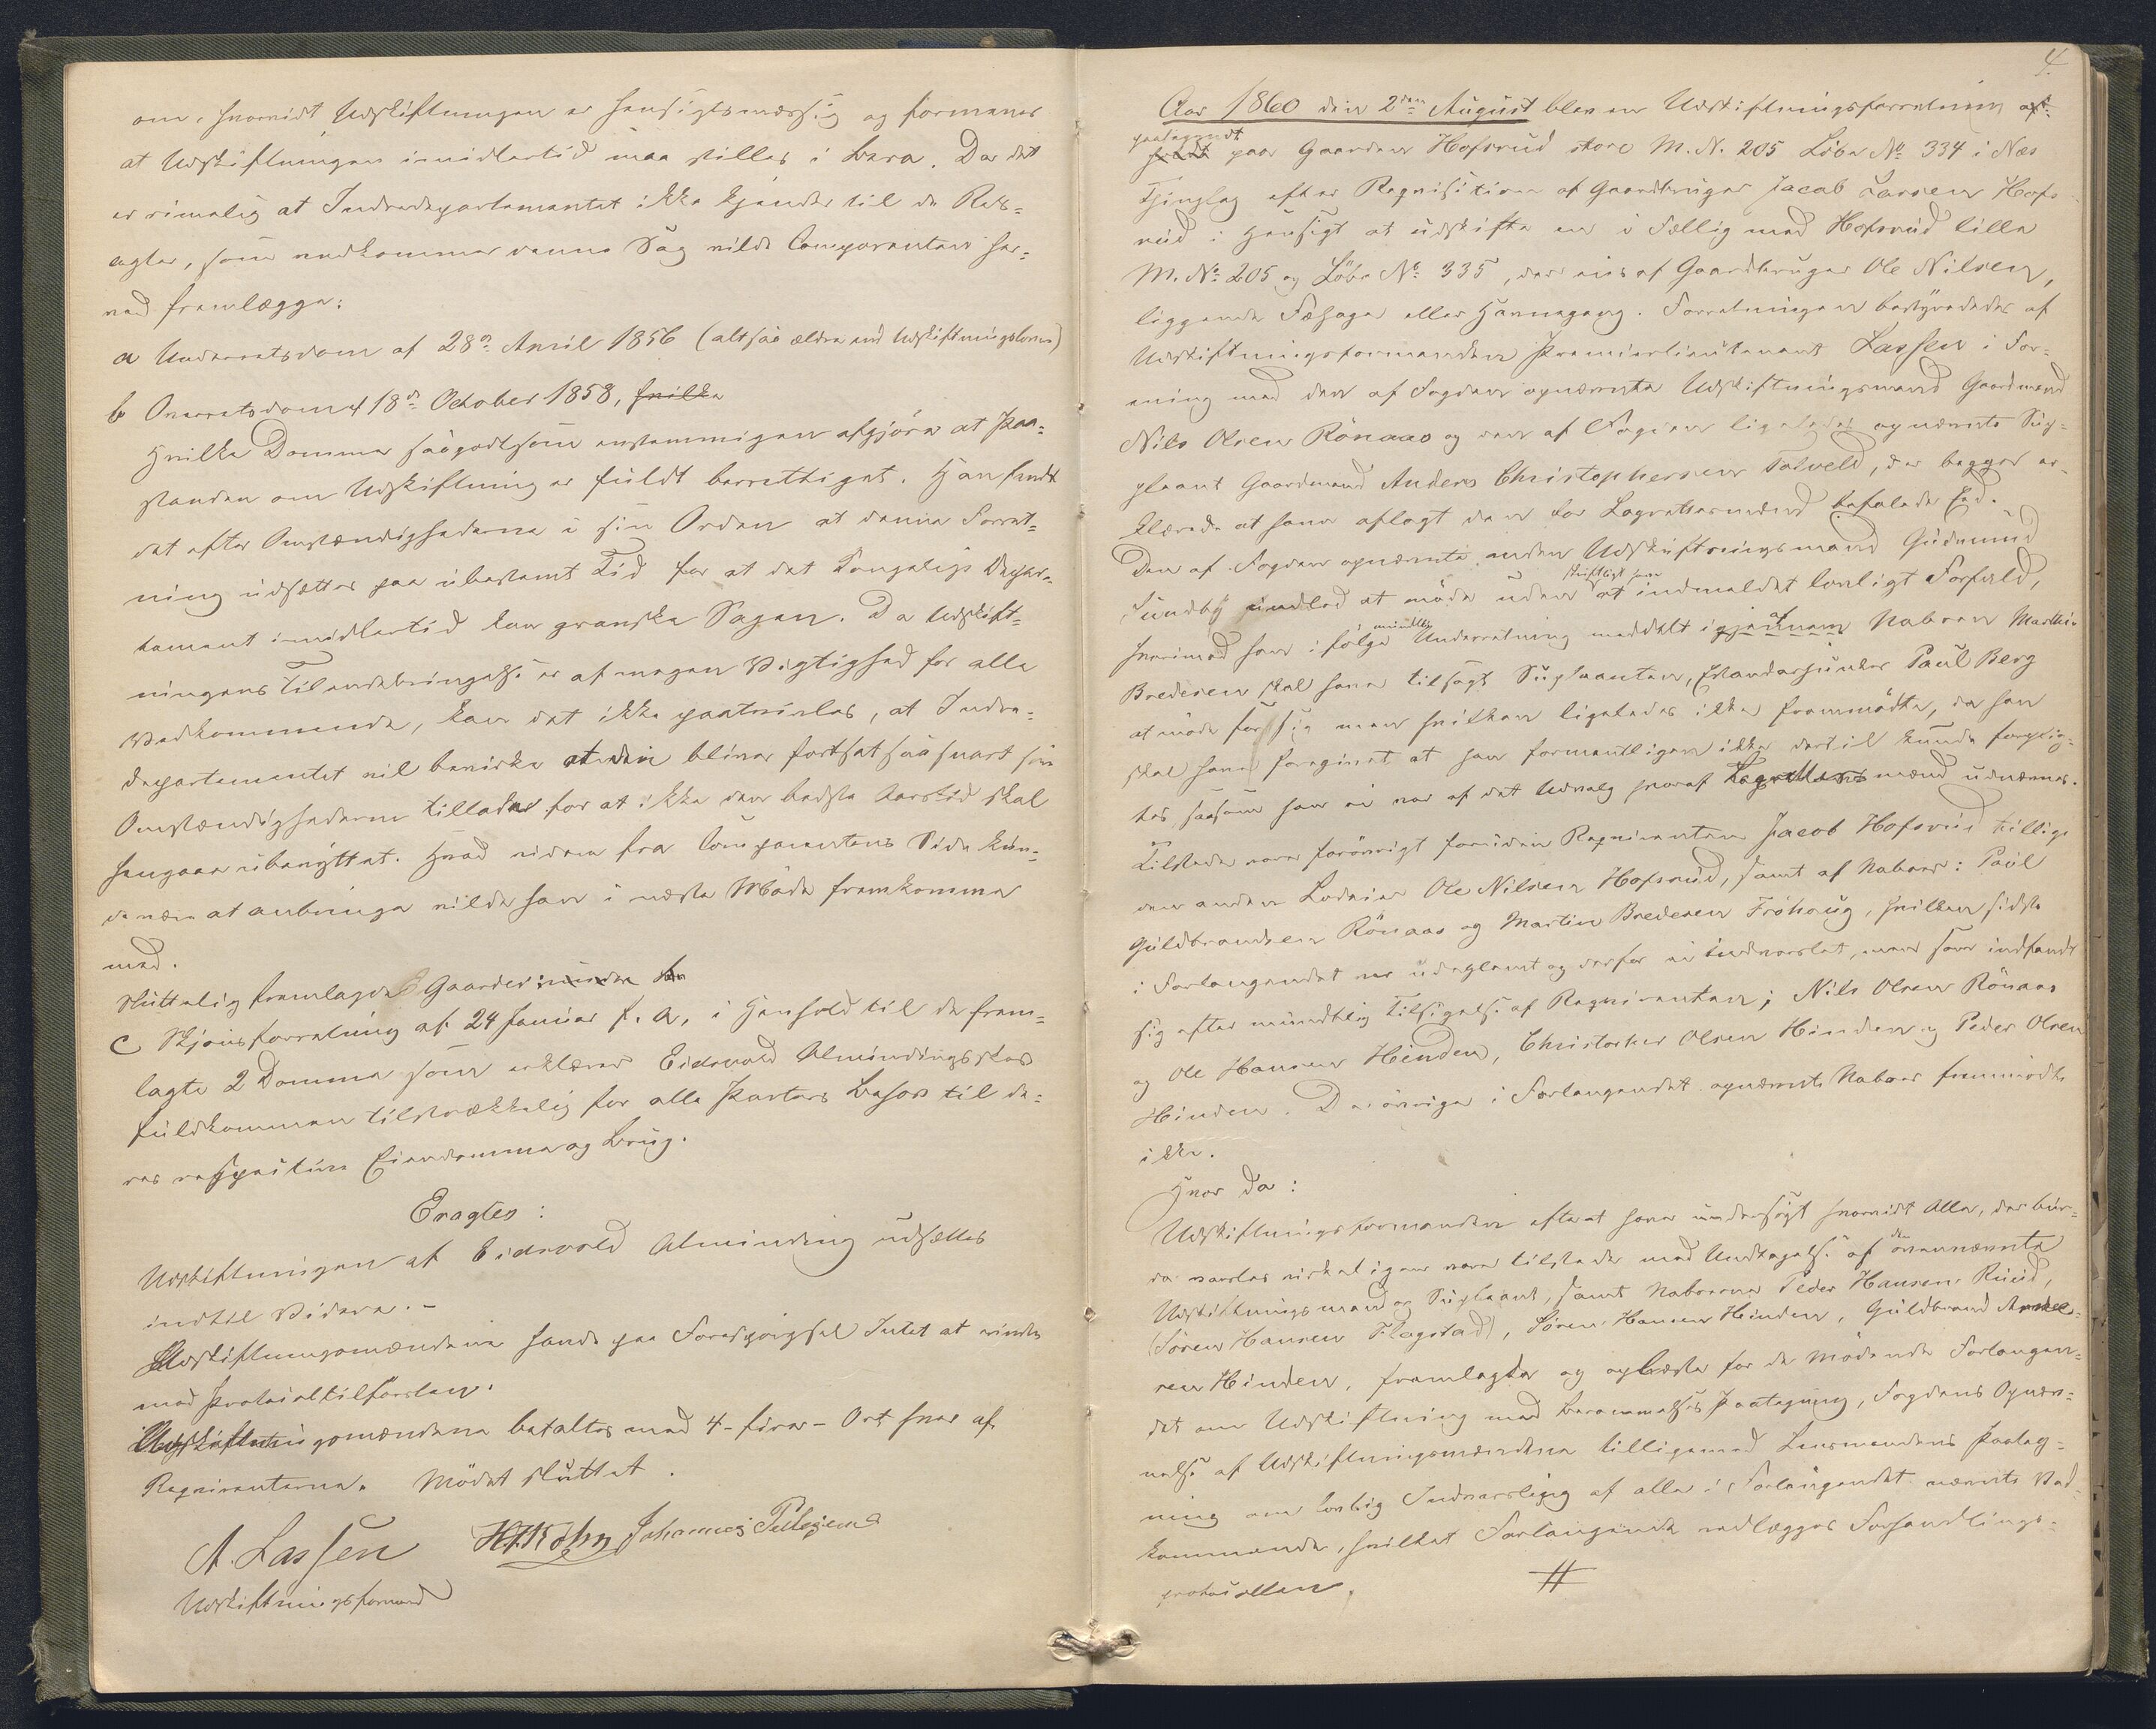 om, hvorvidt Udskiftningen er hensigtsmæssig og formener
at Udskiftningen imidlertid maa stilles i Bero. Da det
er rimelig at Indredepartementet ikke kjender til de Rets-
agter, som vedkommer denne Sag vilde Comparenten her-
ved fremlægge:
a Underretsdom af 28de April 1856 (altsaa ældre end Udskiftningsloven)
b Overretsdom af 18de October 1858, hvilke
Hvilke Domme saagodtsom enstemmigen afgjøre at Paa-
standen om Udskiftning er fuldt berettiget. Han fandt
det efter Omstændighederne i sin Orden at denne Forret-
ning udsættes paa ubestemt Tid for at det Kongelige Depar-
tement imidlertid kan granske Sagen. Da Udskift-
ningens Tilendebringelse er af megen Vigtighed for alle
Vedkommende, kan det ikke paatvivles, at Indre-
departementet vil bevirke at den bliver fortsat saasnart som
Omstændighederne tillader for at ikke den bedste Aarstid skal
hengaae ubenyttet. Hvad videre fra Comparentens Side kun-
de være at anbringe vilde han i næste Møde fremkomme
med.
Sluttelig fremlagde Gaarder
C Skjønsforretning af 24 Januar f. A, i Henhold til de frem-
lagte 2 Domme som erklærer Eidsvold Almindingsskov
fuldkommen tilstrækkelig for alle Parters Behov til de-
res respective Eiendomme og Brug.
Eragtes:
Udskiftningen af Eidsvold Alminding udsættes
indtil Videre. –
Udskiftningsmændene havde paa Forespørgsel Intet at erindre
mod Protocoltilførslen.
Udskiftningsmændene betaltes med 4 - fire - Ort hver af
Reqvirenterne. Mødet sluttet.
A. Lassen
Udskiftningsformand
4.
Aar 1860 den 2den August blev en Udskiftningsforretning
paabegyndt
paa Gaarden Hofsrud store M. N. 205 Løbe No 334 i Næs
Thinglag efter Reqvisition af Gaardbruger Jacob Larsen Hofs
rud i Hensigt at udskifte en i Fællig med Hofsrud lille
M. No 205 og Løbe No 335, der eies af Gaardbruger Ole Nilsen,
liggende Fæhage eller Havnegang. Forretningen bestyredes af
Udskiftningsformanden Premierlieutenant Lassen i For-
ening med den af Fogden opnævnte Udskiftningsmand Gaardmand
Nils Olsen Rönaas og den af Fogden ligeledes opnævnte Sup-
pleant Gaardmand Anders Christophersen Tolveld, der begge er-
klærede at have aflagt den for Lagrettesmænd befalede Ed.
Den af Fogden opnævnte anden Udskiftningsmand Gudmund
Sundby undlod at møde uden skriftligt at have indmeldt lovligt Forfald,
hvorimod han i følge mündtlig Underretning meddelt igjennem af Naboen Martin
Bredesen skal have tilsagt Supleanten, Standarjunker Paul Berg
at møde for sig men hvilken ligeledes ikke fremmødte, da han
skal have foregivet at han formentligen ikke dertil kunde forplig-
tes saasom han ei var af det Udvalg hvoraf Lagrettesmænd udnævnes.
Tilstede vare forøvrigt foruden Reqvirenten Jacob Hofsrud tillige
den anden Lodeier Ole Nilsen Hofsrud, samt af Naboer: Paul
Guldbrandsen Rönaas og Martin Bredesen Fröhaug, hvilken sidste
i Forlangendet var udeglemt og derfor ei indvarslet, men som indfandt
sig efter mundtlig Tilsigelse af Reqvirenten; Nils Olsen Rönaas
og Ole Hansen Hinden, Christopher Olsen Hinden og Peder Olsen
Hinden. De øvrige i Forlangendet opnævnte Naboer fremmødte
ikke.
Hvor da:
Udskiftningsformanden efterat have undersøgt hvorvidt Alle, der bur-
de varsles virkeligen vare tilstede med Undtagelse af den ovennævnte
Udskiftningsmand og Supleant, samt Naboerne Peder Hansen Ruud,
(Sören Hansen Flagstad), Sören Hansen Hinden, Guldbrand Andre-
sen Hinden, fremlagde og oplæste for de Mødende Forlangen-
det om Udskiftning med Berammelses Paategning, Fogdens Opnæv-
nelse af Udskiftningsmændene tilligemed Lensmandens Paateg-
ning om lovlig Indvarsling af alle i Forlangendet nævnte Ved-
kommende, hvilket Forlangende vedlægges Forhandlings-
protocollen. #